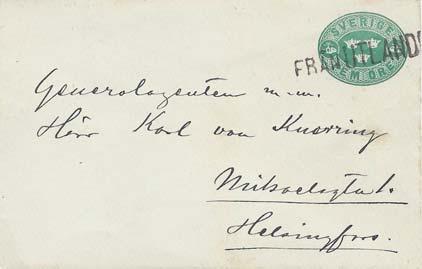 SVERIGE
FEM ÖRE
FRÅN UTLANDE
Generalagenten m.m.
Herr Karl von Knorring
Mikaelsgt. 1.
Helsingfors.